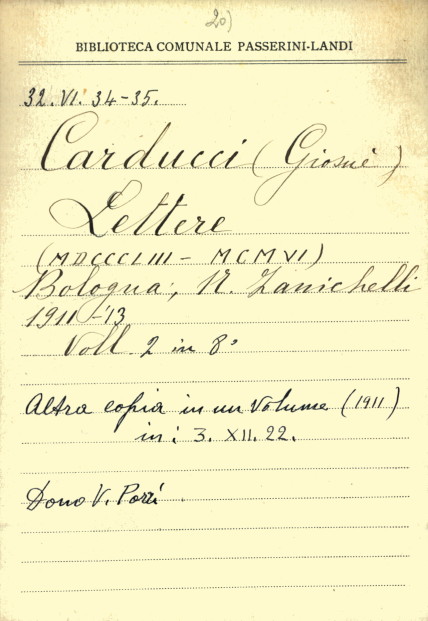 20)
BIBLIOTECA COMUNALE PASSERINI-LANDI
32. VI. 34-35.
Carducci (Giosuè)
Lettere
(MDCCCLIII - MCMVI)
Bologna, N. Zanichelli
1911-'13
Voll. 2 in 8°
Altra copia in un volume (1911)
in: 3. XII. 22.
Dono V.